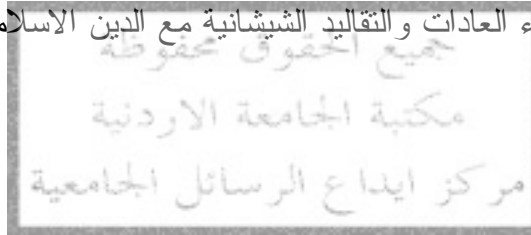 ء العادات والتقاليد الشيشانية مع الدين الاسلا
جميع الحقوق محفوظة
مكتبة الجامعة الاردنية
مركز ايداع الرسائل الجامعية